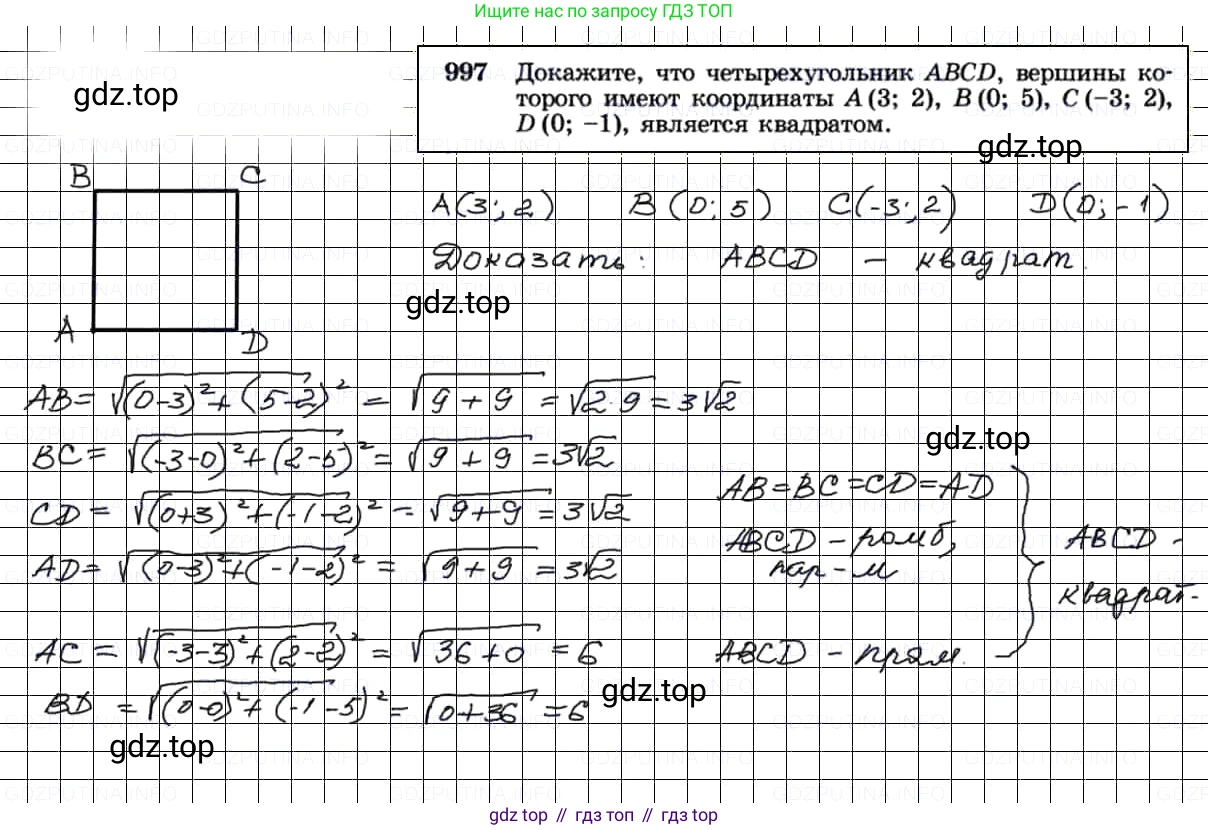 Ищите нас по запросу ГДЗ ТОП
997 Докажите, что четырехугольник ABCD, вершины ко-
торого имеют координаты A (3; 2), B (0; 5), C (−3; 2),
D (0; −1), является квадратом.
gdz.top
gdz.top
B C
A D
A(3; 2) B (0; 5) C(-3; 2) D(0; -1)
Доказать: ABCD - квадрат.
gdz.top
AB = √((0-3)² + (5-2)²) = √(9+9) = √(2·9) = 3√2
BC = √((-3-0)² + (2-5)²) = √(9+9) = 3√2
gdz.top
CD = √((0+3)² + (-1-2)²) = √(9+9) = 3√2
AD = √((0-3)² + (-1-2)²) = √(9+9) = 3√2
AB = BC = CD = AD
ABCD - ромб,
пар-м
ABCD -
квадрат.
AC = √((-3-3)² + (2-2)²) = √(36+0) = 6
ABCD - прям.
BD = √((0-0)² + (-1-5)²) = √(0+36) = 6
gdz.top
gdz.top
gdz top // гдз топ // gdz top
GDZPUTINA.INFO